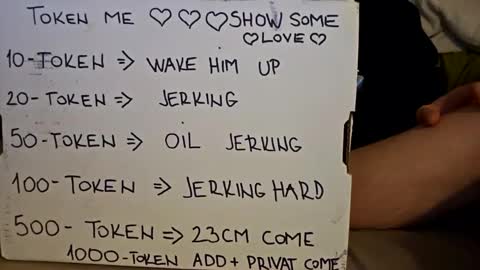 TOKEN ME ♡ ♡ ♡ SHOW SOME
♡ LOVE ♡
10-TOKEN => WAKE HIM UP
20-TOKEN => JERKING
50-TOKEN => OIL JERKING
100-TOKEN => JERKING HARD
500-TOKEN => 23CM COME
1000-TOKEN ADD + PRIVAT COME